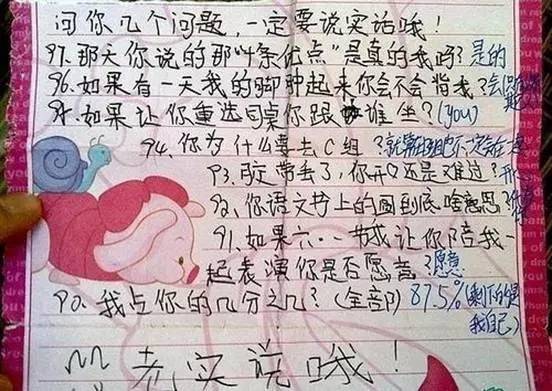 问你几个问题,一定要说实话哦!
97.那天你说的那"4条优点"是真的我吗?是的
96.如果有一天我的脚肿起来你会不会背我?会
94.如果让你重选同桌你跟谁坐?(you)
94.你为什么要去C组?就算
93.发带丢了,你开心还是难过?开
92.你语文书上的圈到底啥意思?
91.如果六·一节我让你陪我一
起表演你是否愿意?愿意
90.我占你的几分之几?(全部)87.5%(剩下的是
我自己)
老实说哦!